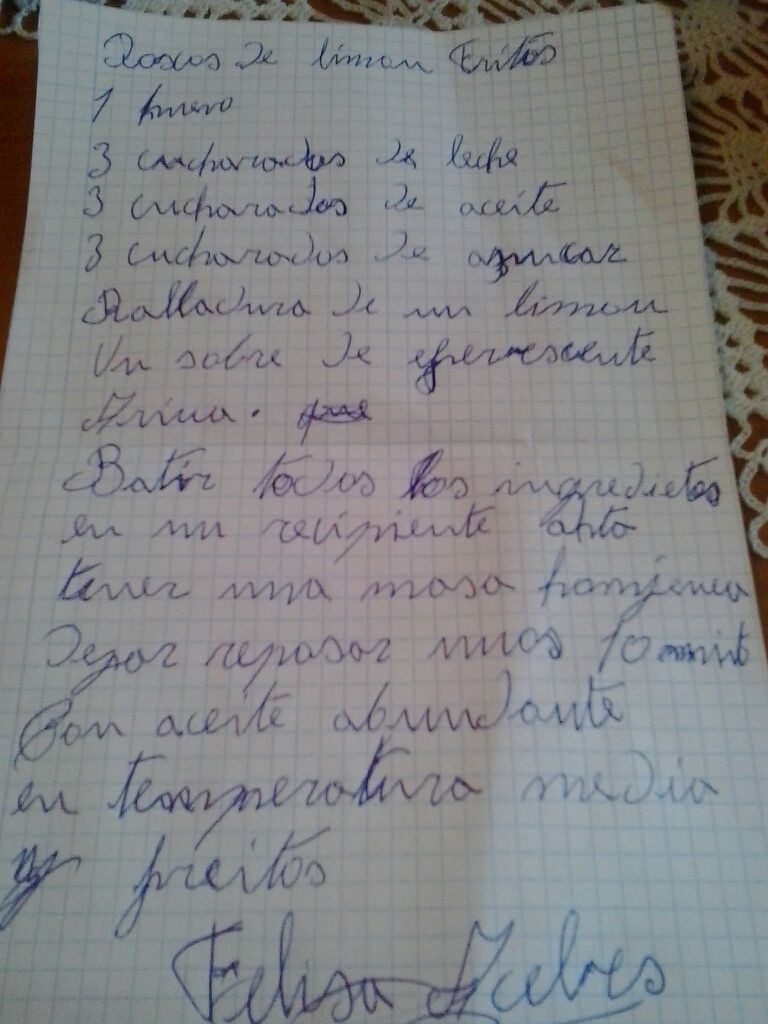 Roscos de limon Fritos
1 huevo
3 cucharadas de leche
3 cucharadas de aceite
3 cucharadas de azucar
Ralladura de un limon
Un sobre de efervescente
Arina.
Batir todos los ingredietes
en un recipiente obto
tener una masa homjenea
Dejar reposar unos 10 minit
Con aceite abundante
en temperatura media
y freitos
Felisa